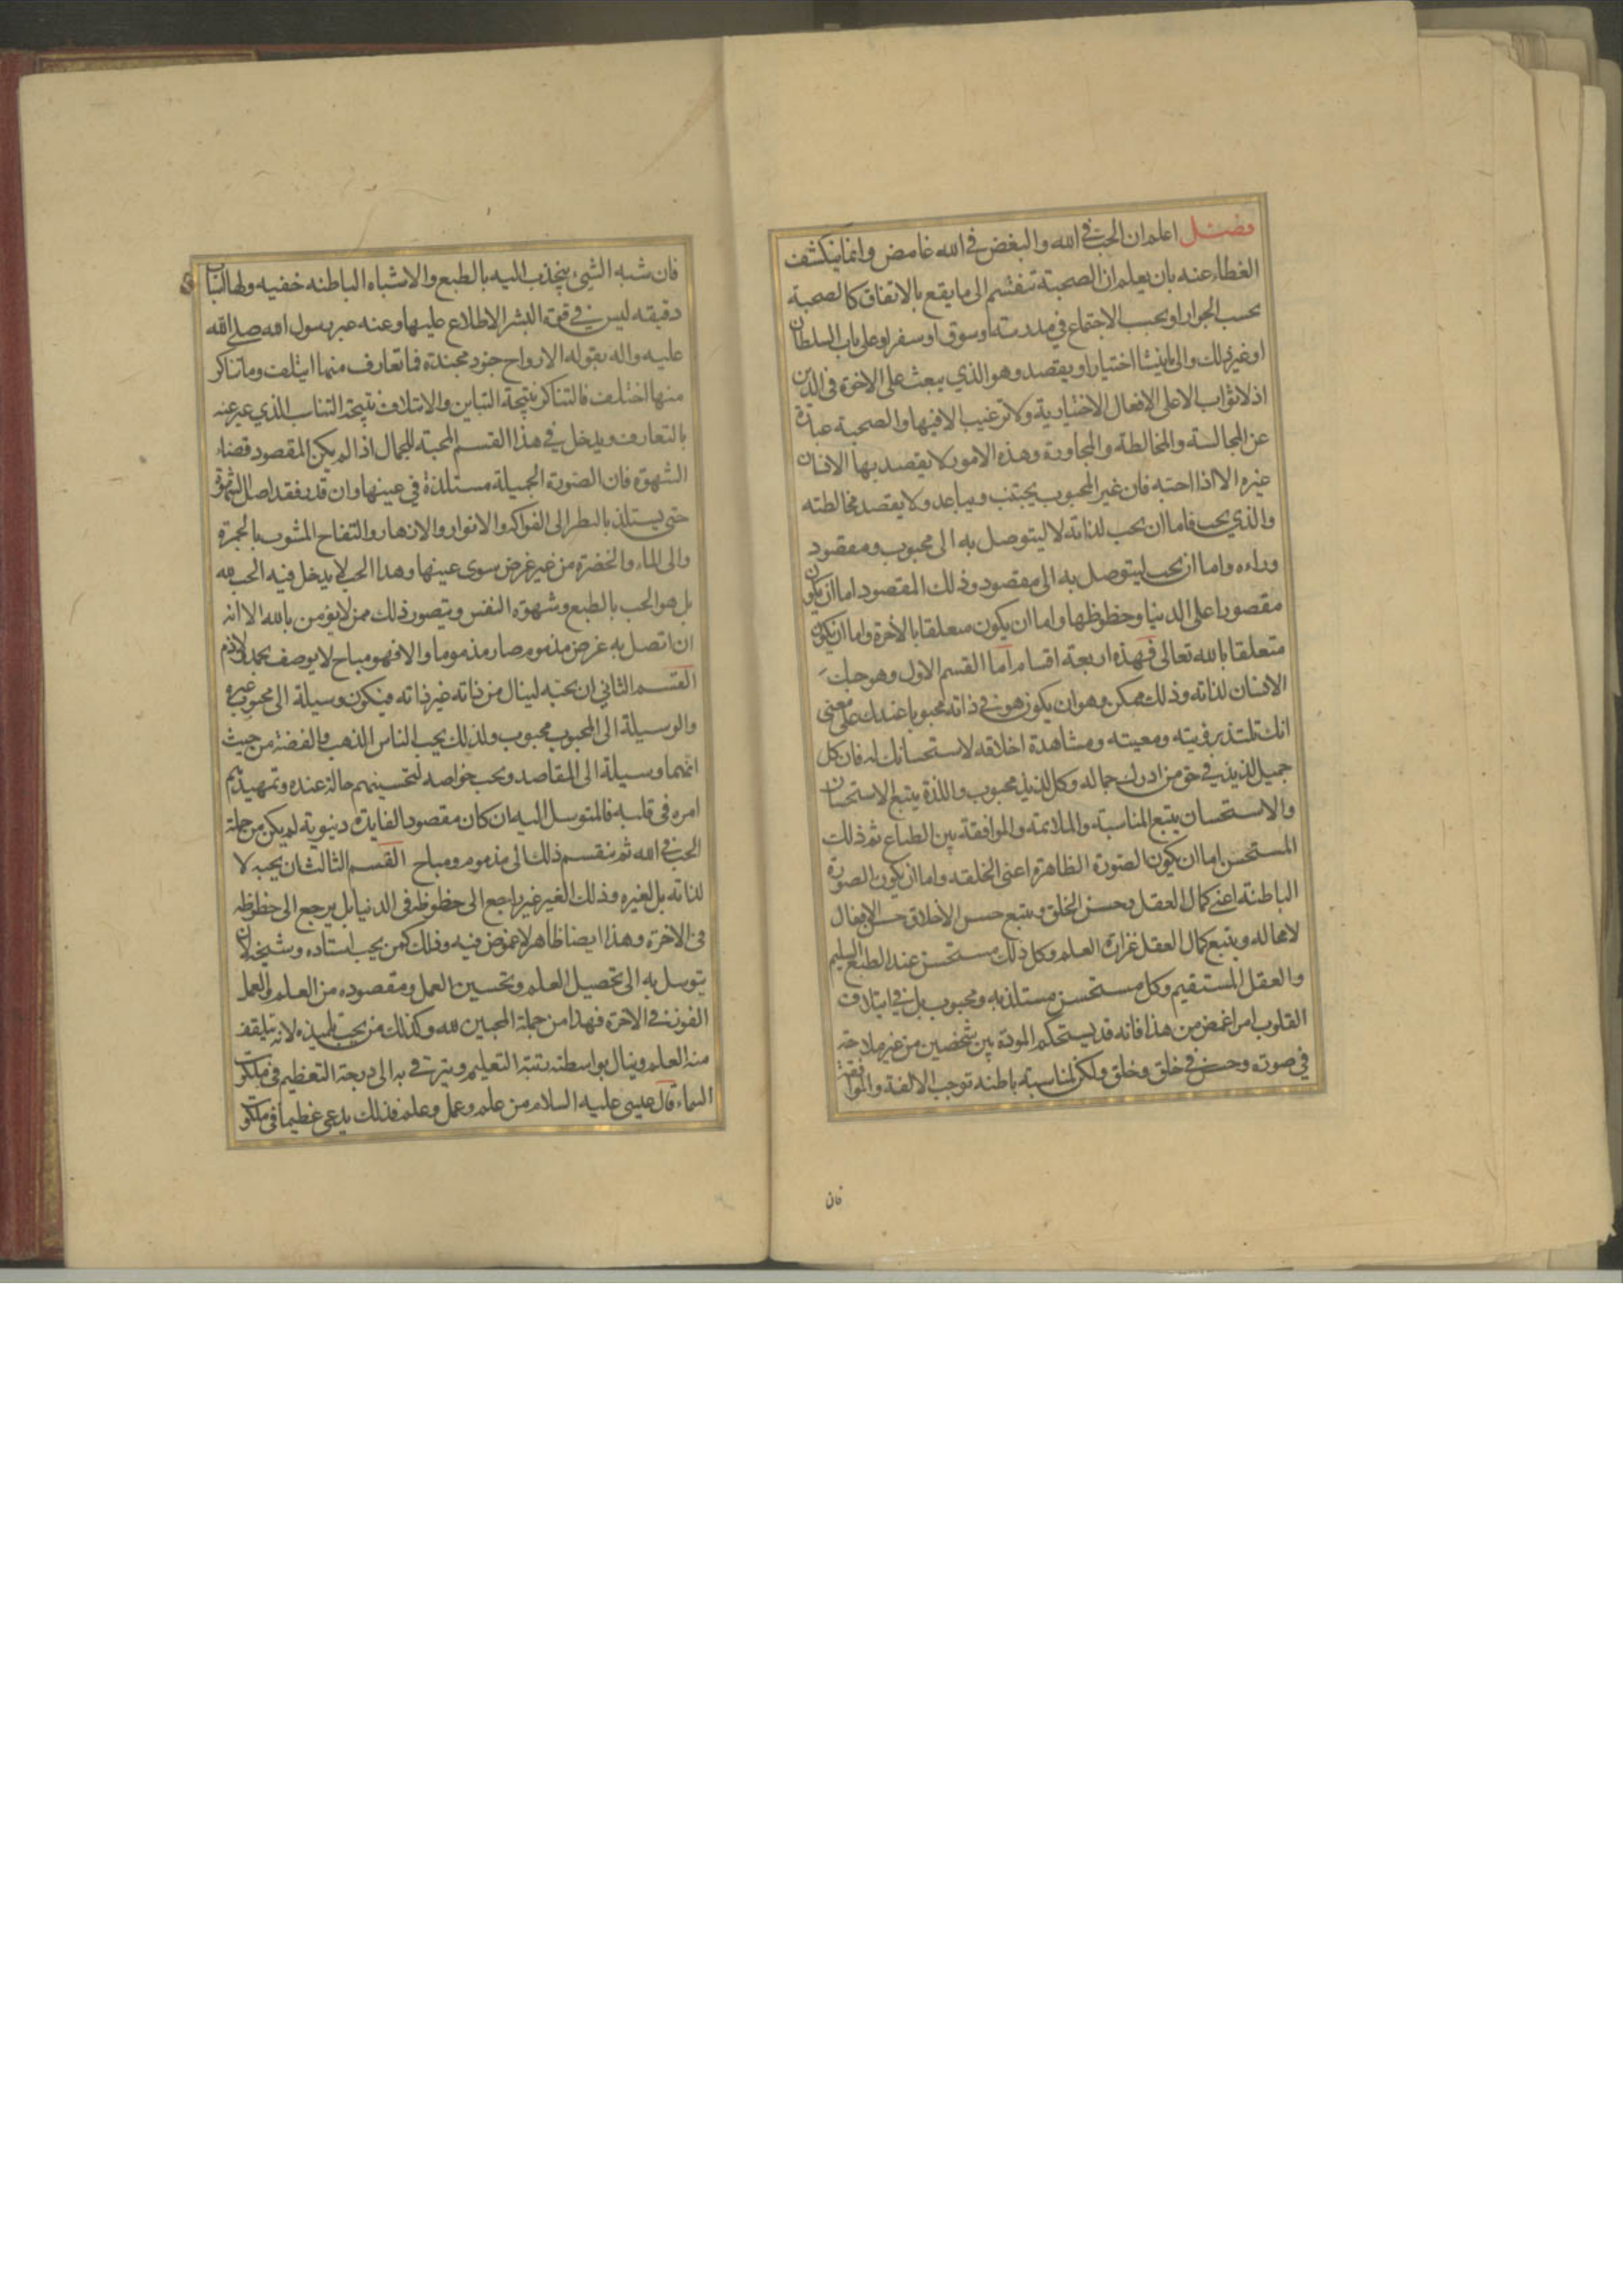 فصل اعلم ان الحب في الله والبغض في الله غامض وانما ينكشف
الغطاء عنه بان يعلم ان الصحبة تنقسم الى ما يقع بالاتفاق كالصحبة
بحسب الجوار او بحسب الاجتماع في مدرسة او سوق او سفر او على باب السلطان
او غير ذلك والى ما ينشا اختيارا ويقصد وهو الذي يبعث على الاخوة في الدين
اذ لا ثواب الا على الافعال الاختيارية ولا ترغيب الا فيها والصحبة عبارة
عن المجالسة والمخالطة والمجاورة وهذه الامور لا يقصد بها الانسان
غيره الا اذا احبه فان غير المحبوب يجتنب ويباعد ولا يقصد مخالطته
والذي يحب فاما ان يحب لذاته لا ليتوصل به الى محبوب ومقصود
وراءه واما ان يحب ليتوصل به الى مقصود وذلك المقصود اما ان يكون
مقصورا على الدنيا وحظوظها واما ان يكون متعلقا بالآخرة واما ان يكون
متعلقا بالله تعالى فهذه اربعة اقسام اما القسم الاول وهو حبك
الانسان لذاته وذلك ممكن وهو ان يكون هو في ذاته محبوبا عندك على معنى
انك تلتذ برؤيته ومعيته ومشاهدة اخلاقه لاستحسانك له فان كل
جميل لذيذ في حق من ادرك جماله وكل لذيذ محبوب واللذة يتبع الاستحسان
والاستحسان يتبع المناسبة والملائمة والموافقة بين الطباع ثم ذلك
المستحسن اما ان يكون الصورة الظاهرة اعنى الخلقه واما ان يكون الصورة
الباطنة اعني كمال العقل وحسن الخلق ويتبع حسن الأخلاق حسن الافعال
لا محاله ويتبع كمال العقل غزارة العلم وكل ذلك مستحسن عند الطبع السليم
والعقل المستقيم وكل مستحسن مستلذ به ومحبوب بل في ايتلاف
القلوب امر اغمض من هذا فانه قد يستحكم المودة بين شخصين من غير ملاحة
في صورة وحسن في خلق وخلق ولكن لمناسبة باطنه توجب الالفة والموافقة
فان
فان شبه الشيء ينجذب اليه بالطبع والاشباه الباطنه خفيه ولها اسباب
دقيقه ليس في قوة البشر الاطلاع عليها وعنه عبر رسول الله صلى الله
عليه واله بقوله الارواح جنود مجندة فما تعارف منها ايتلف وما تناكر
منها اختلف فالتناكر نتيجة التباين والائتلاف نتيجة التناسب الذي عبر عنه
بالتعارف ويدخل في هذا القسم المحبة للجمال اذا لم يكن المقصود قضاء
الشهوة فان الصورة الجميلة مستلذة في عينها وان قدر فقد اصل الشهوة
حتى يستلذ بالنظر الى الفواكه والانوار والازهار والتفاح المشوب بالحمرة
والى الماء والخضرة من غير غرض سوى عينها وهذا الحب لا يدخل فيه الحب لله
بل هو الحب بالطبع وشهوة النفس ويتصور ذلك ممن لا يؤمن بالله الا انه
ان اتصل به غرض مذموم صار مذموما والا فهو مباح لا يوصف بحمد ولا ذم
القسم الثاني ان يحبه لينال من ذاته غير ذاته فيكون وسيلة الى محبوب غيره
والوسيلة الى المحبوب محبوب ولذلك يحب الناس الذهب والفضة من حيث
انهما وسيلة الى المقاصد ويحب خواصه لتحسينهم حاله عنده وتمهيدهم
امره في قلبه فالمتوسل اليه ان كان مقصود الفايدة دنيوية لم يكن من جملة
الحب في الله ثم ينقسم ذلك الى مذموم ومباح القسم الثالث ان يحبه لا
لذاته بل لغيره وذلك الغير غير راجع الى حظوظه في الدنيا بل يرجع الى حظوظه
في الآخرة وهذا ايضا ظاهر لا غموض فيه وذلك كمن يحب استاده وشيخه لان
يتوسل به الى تحصيل العلم وتحسين العمل ومقصوده من العلم والعمل
الفوز في الآخرة فهذا من جملة المحبين لله وكذلك من يحب تلميذه لانه يتلقف
منه العلم وينال بواسطته رتبة التعليم ويترقى به الى درجة التعظيم في ملكوت
السماء قال عيسى عليه السلام من علم وعمل وعلم فذلك يدعى عظيما في ملكو